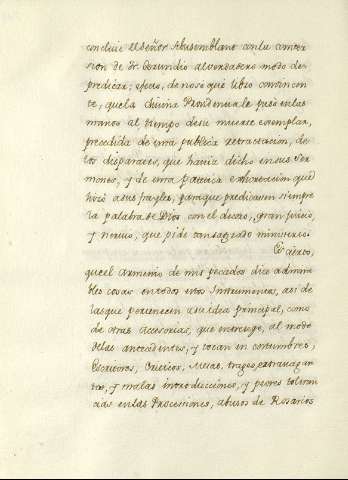 concluie el Señor Abusemblano con la conver
sion de Fr. Gerundio al verdadero modo de
predicar; efecto, de no sé qué libro convincen
te, que la Divina Providencia le puso en las
manos al tiempo de su muerte exemplar,
precedida de una publica retractacion, de
los disparates, que havia dicho en sus Ser
mones, y de una patética exhortacion que
hizo a sus frayles, para que predicasen siempre
la palabra de Dios con el decoro, gran juicio,
y nervio, que pide tan sagrado ministerio.
Es cierto,
que el Armenio de mis pecados dice admira
bles cosas en todos estos Instrumentos, asi de
las que pertenecen a su idea principal, como
de otras accesorias, que entretege, al modo
de las antecedentes, y tocan en costumbres,
Escritores, Criticos, Mesas, trages extravagan
tes, y malas introducciones, y peores toleran
cias en las Processiones, abusos de Rosarios